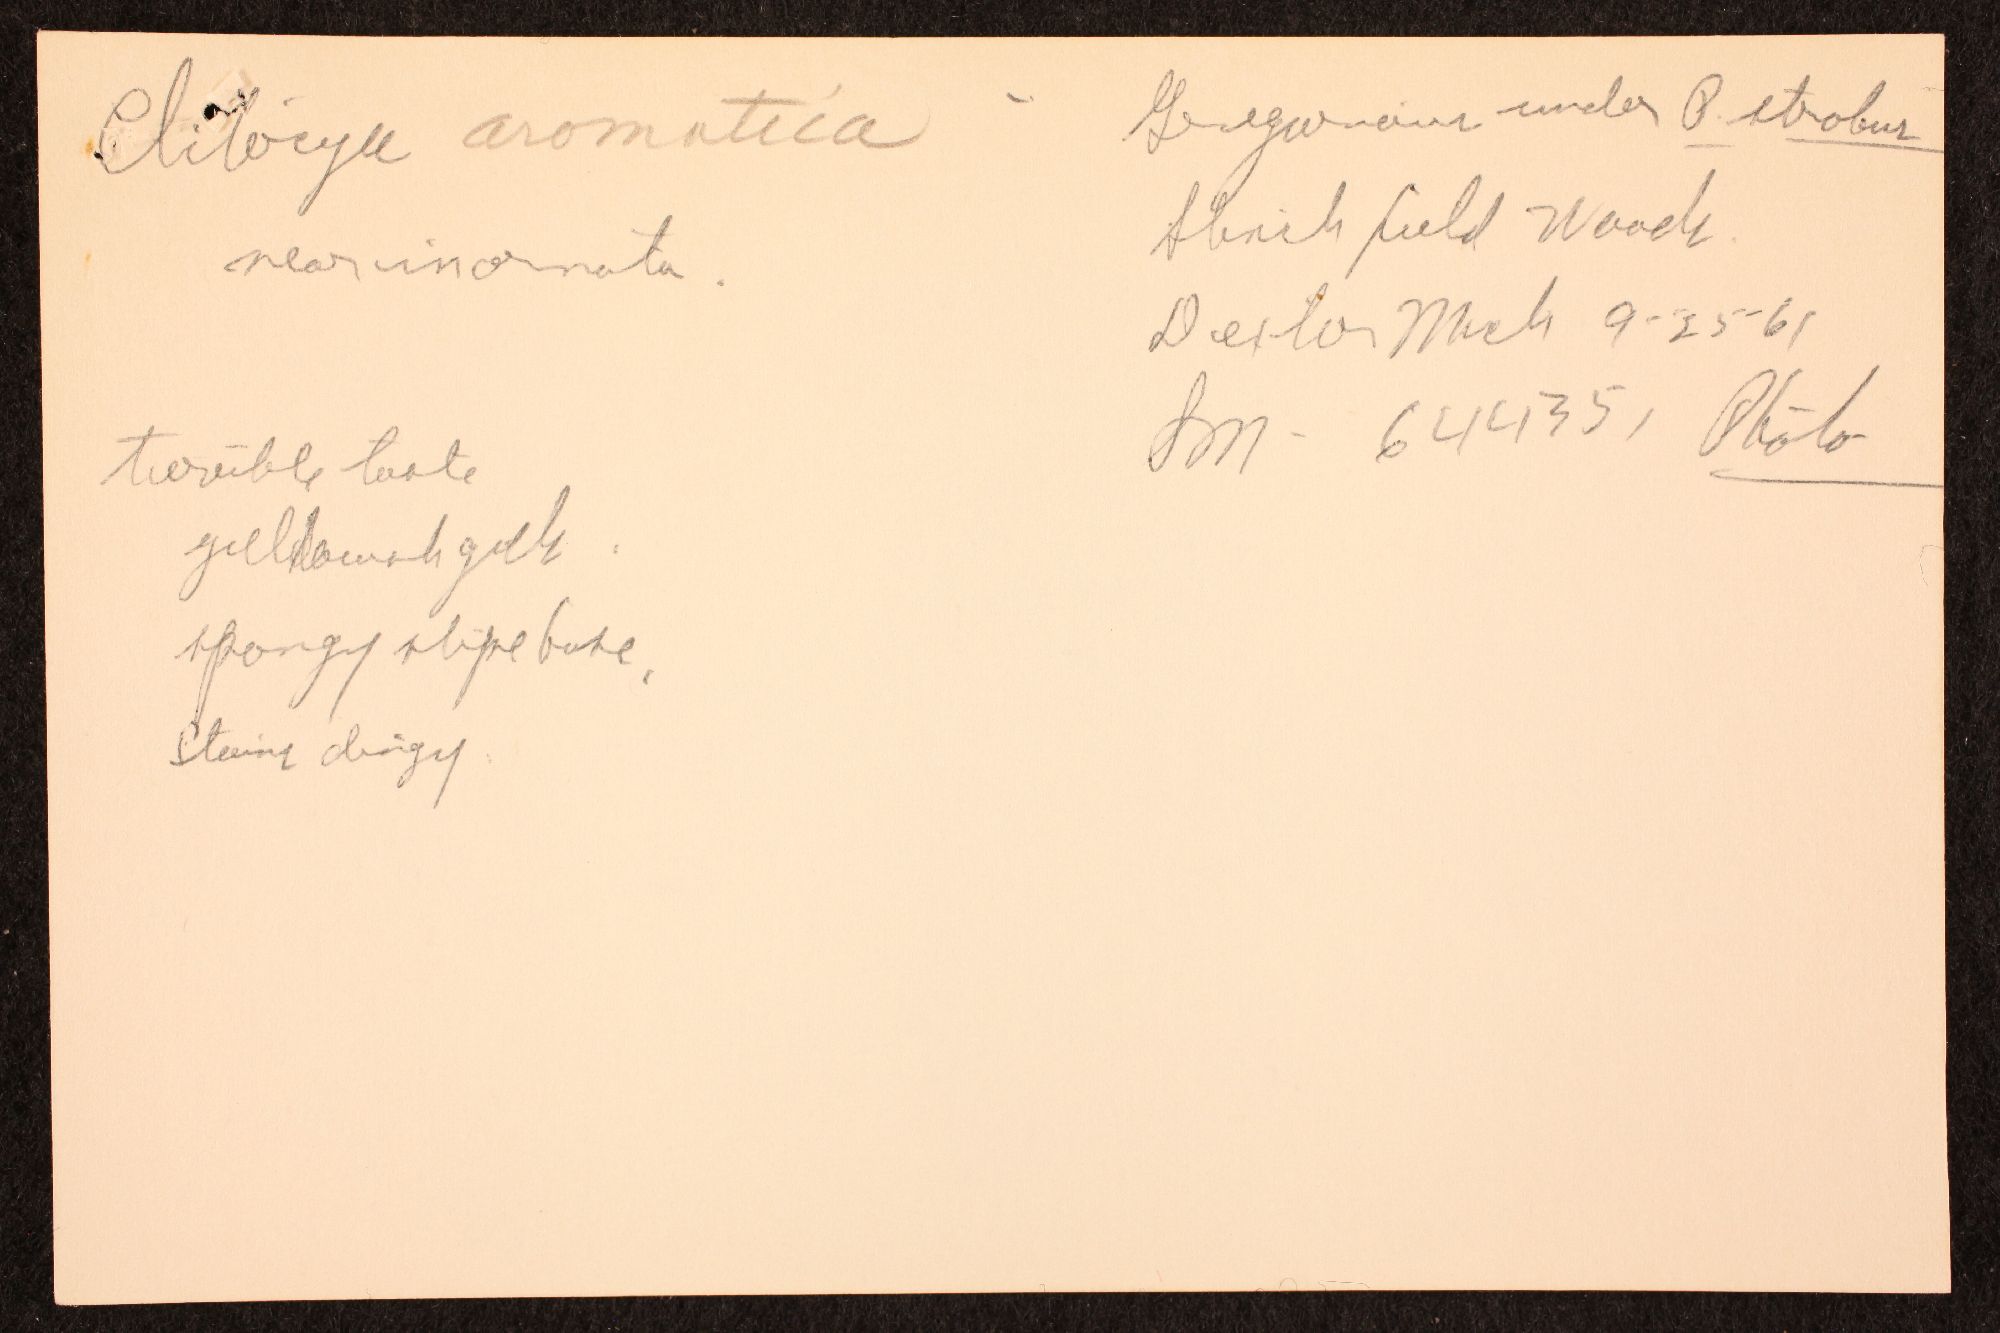 Clitocybe aromatica
near inornata.
terrible taste
yellowish gills.
spongy stipe base.
Stains dingy.
Gregarious under P. strobus
Stinchfield Woods.
Dexter Mich 9-25-61
Sm - 64435, Photo